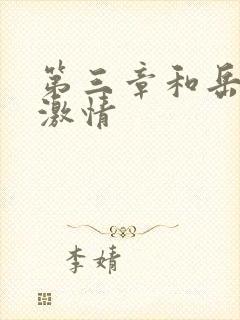 第三章和岳
激情
李婧